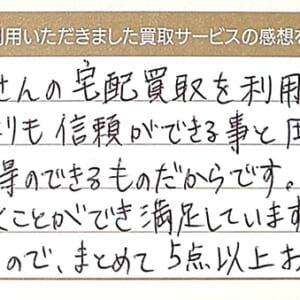 利用いただきました買取サービスの感想を
さんの宅配買取を利用
りも信頼ができる事と
得のできるものだからです。
くことができ満足しています
ので、まとめて5点以上お